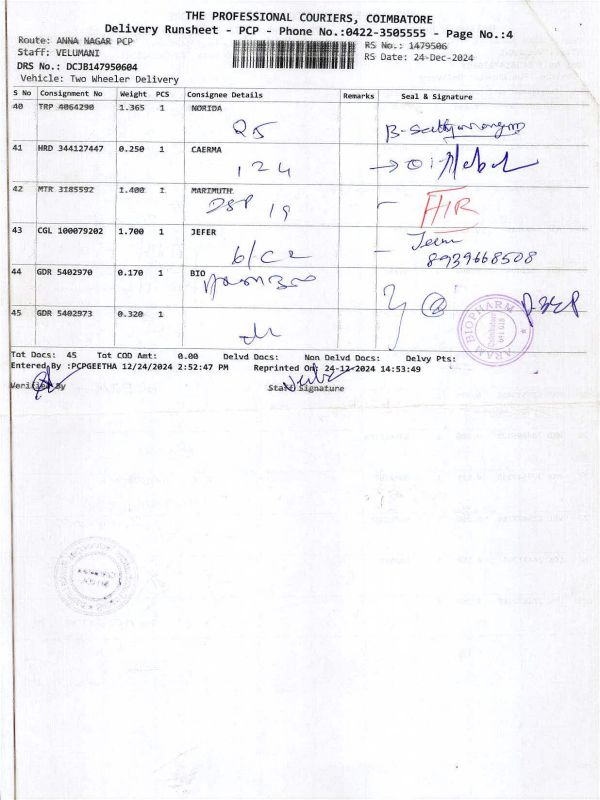 THE PROFESSIONAL COURIERS, COIMBATORE
Delivery Runsheet - PCP - Phone No.:0422-3505555 - Page No.:4
Route: ANNA NAGAR PCP
RS No.: 1479506
Staff: VELUMANI
RS Date: 24-Dec-2024
DRS No.: DCJB147950604
Vehicle: Two Wheeler Delivery
S No Consignment No Weight PCS Consignee Details Remarks Seal & Signature
40 TRP 4064290 1.365 1 NORIDA
25
41 HRD 344127447 0.250 1 CAERMA
124
42 MTR 3185592 1.400 1 MARIMUTH
DSP 19
43 CGL 100079202 1.700 1 JEFER
8939668508
44 GDR 5402970 0.170 1 BIO
45 GDR 5402973 0.320 1
ARAM BIOPHARM
Tot Docs: 45 Tot COD Amt: 0.00 Delvd Docs: Non Delvd Docs: Delvy Pts:
Entered By :PCPGEETHA 12/24/2024 2:52:47 PM Reprinted On: 24-12-2024 14:53:49
Verified By Staff Signature